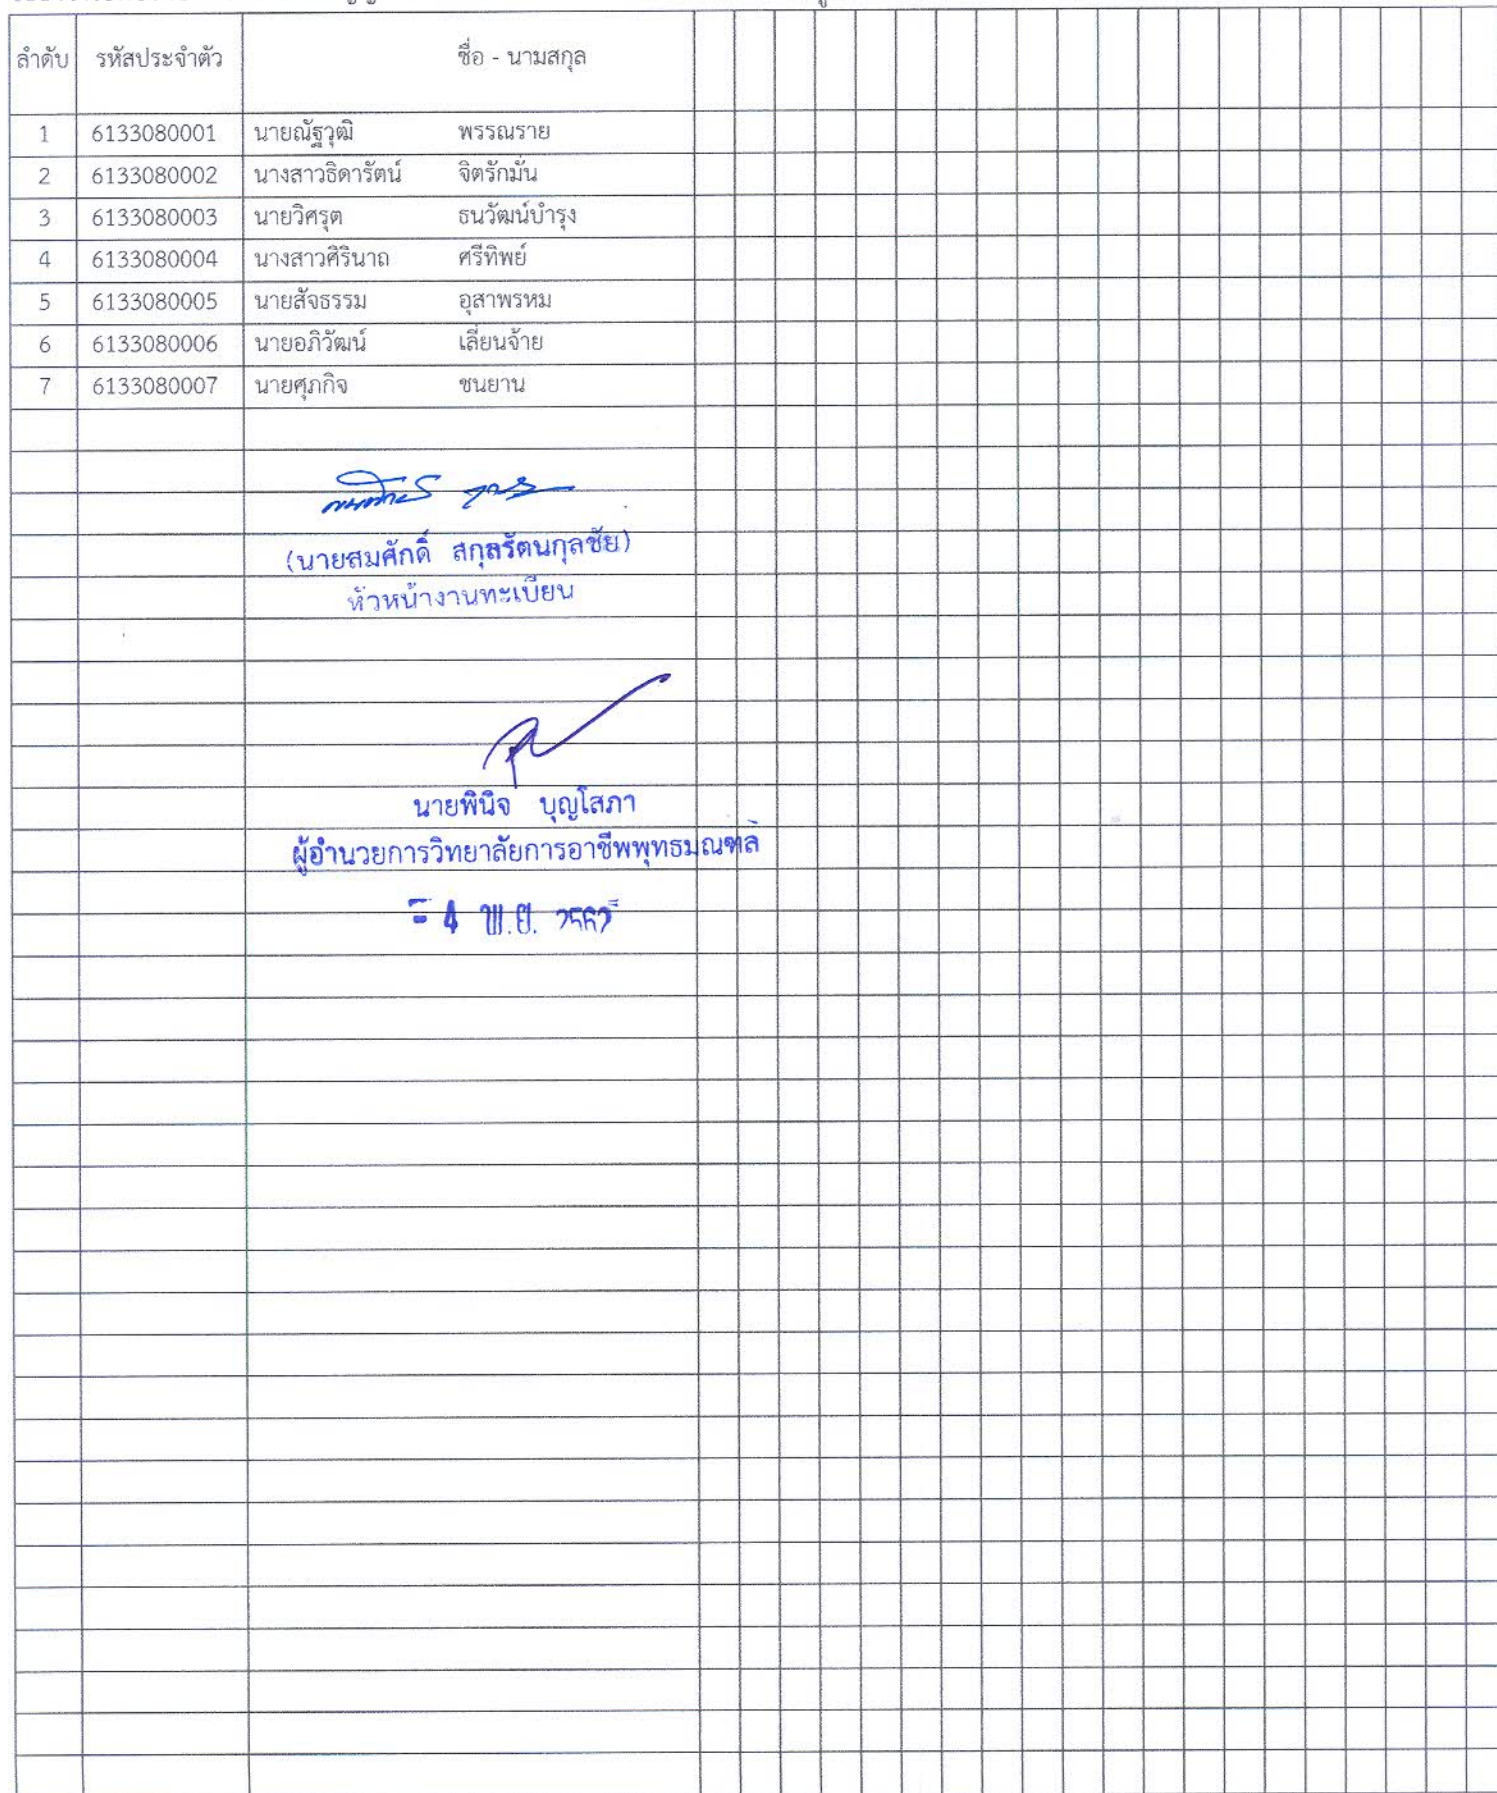 ลำดับ รหัสประจำตัว ชื่อ - นามสกุล
1 6133080001 นายณัฐวุฒิ พรรณราย
2 6133080002 นางสาวธิดารัตน์ จิตรักมั่น
3 6133080003 นายวิศรุต ธนวัฒน์บำรุง
4 6133080004 นางสาวศิรินาถ ศรีทิพย์
5 6133080005 นายสัจธรรม อุสาพรหม
6 6133080006 นายอภิวัฒน์ เลี่ยนจ้าย
7 6133080007 นายศุภกิจ ชนยาน
(นายสมศักดิ์ สกุลรัตนกุลชัย)
หัวหน้างานทะเบียน
นายพินิจ บุญโสภา
ผู้อำนวยการวิทยาลัยการอาชีพพุทธมณฑล
- 4 พ.ย. 2562